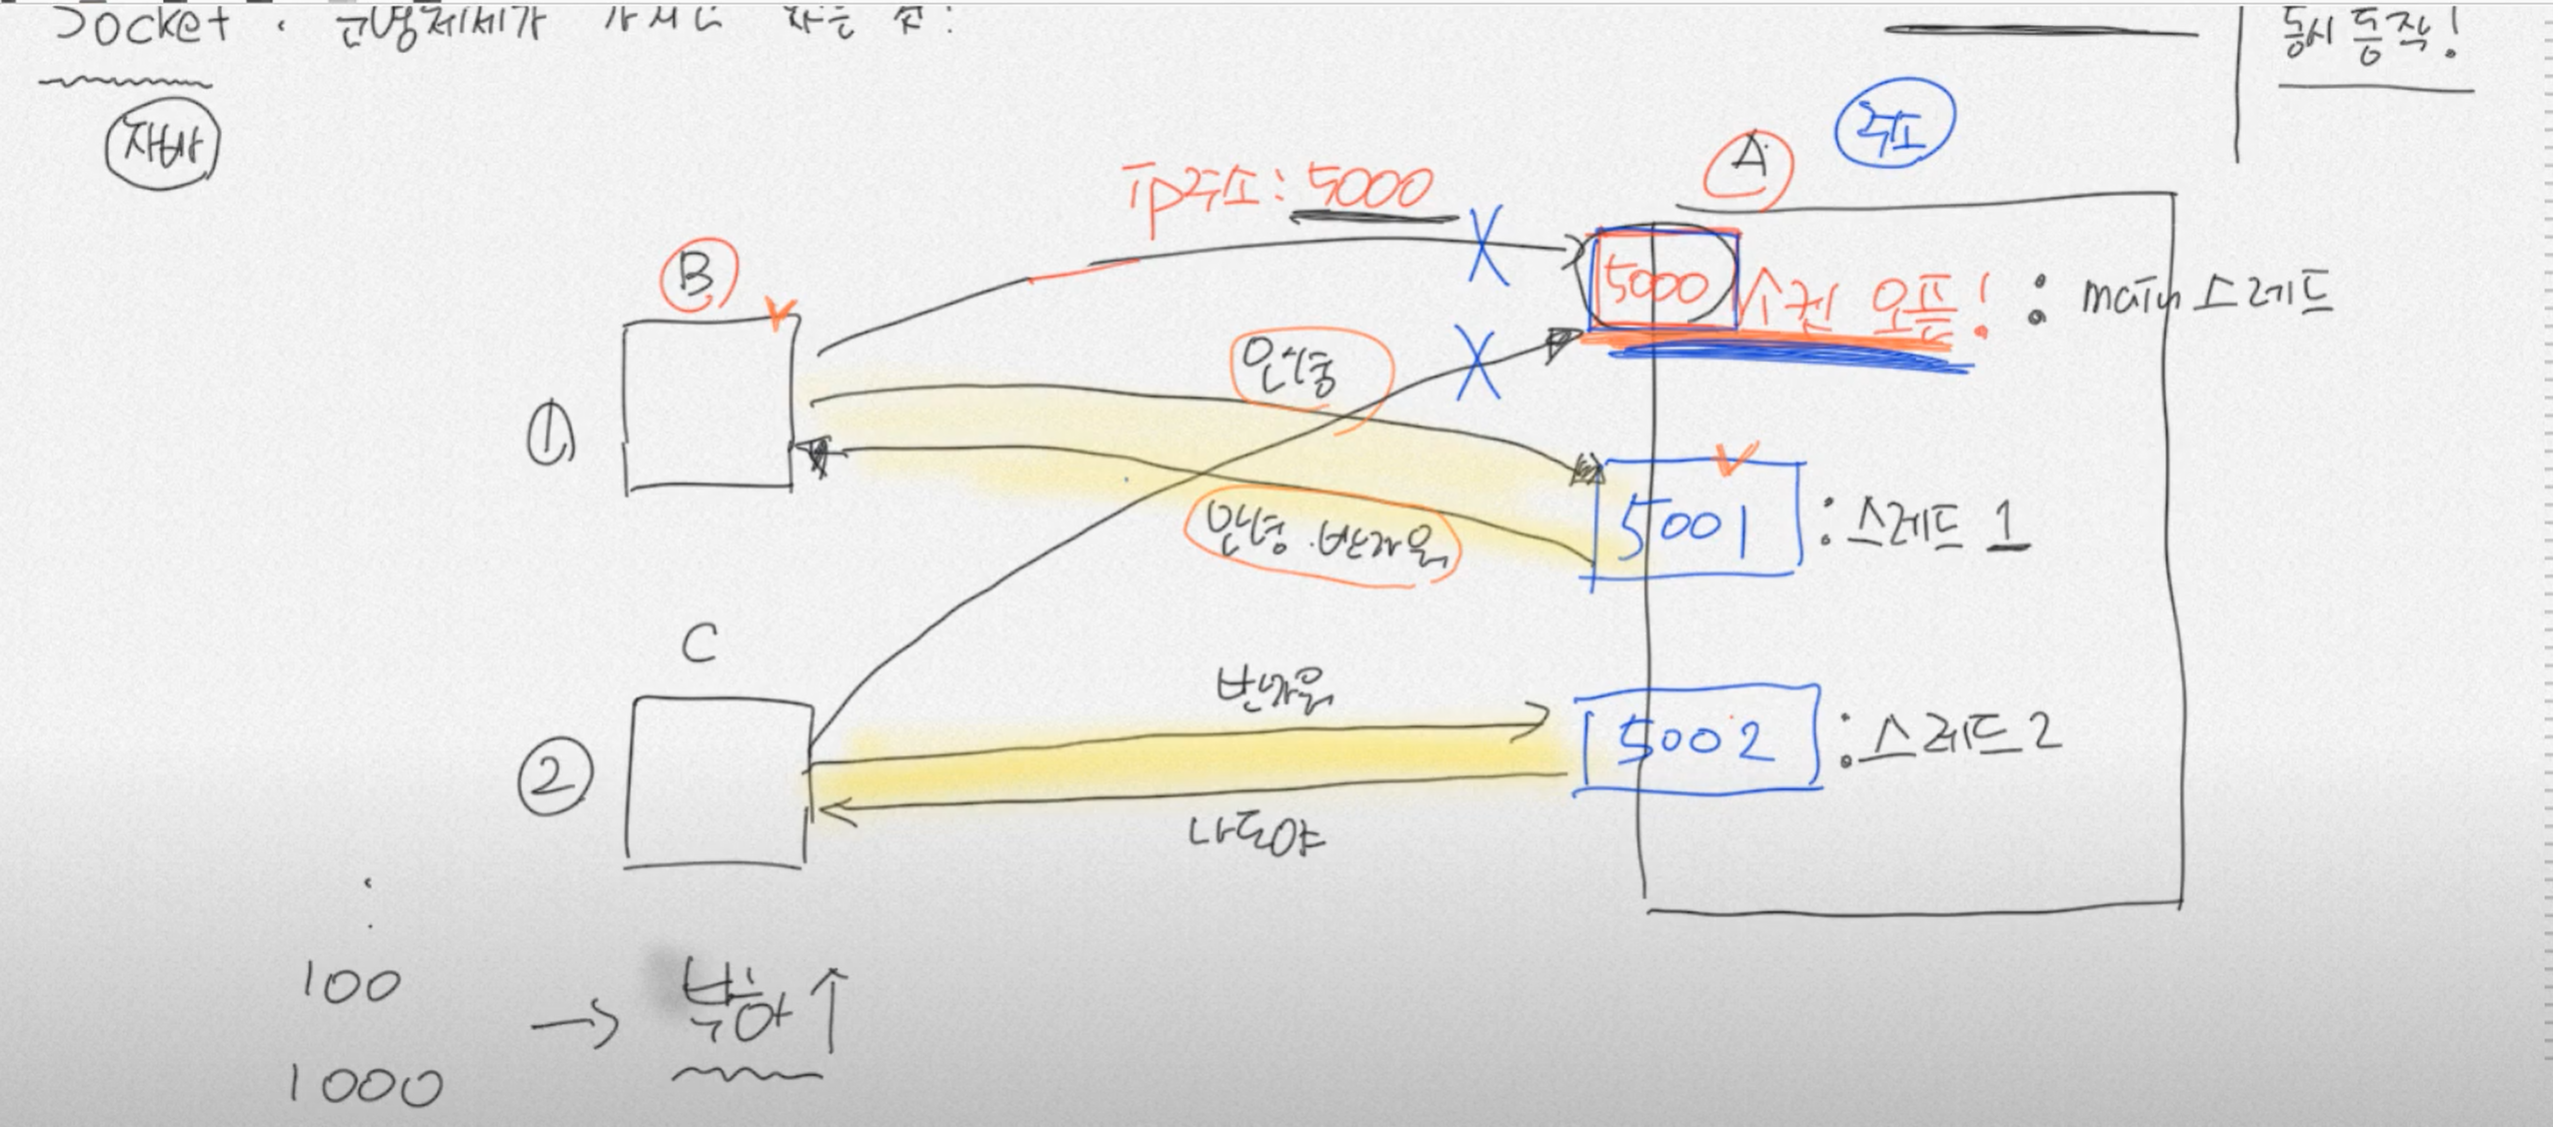 Socket : 운영체제가 가지고 있는 것!
동시 동작!
자바
주소
A
IP주소: 5000
B
5000 소켓 오픈! : main 스레드
안녕
①
5001 : 스레드 1
안녕 반가워
C
반가워
② 5002 : 스레드 2
나도야
100
→ 부하↑
1000